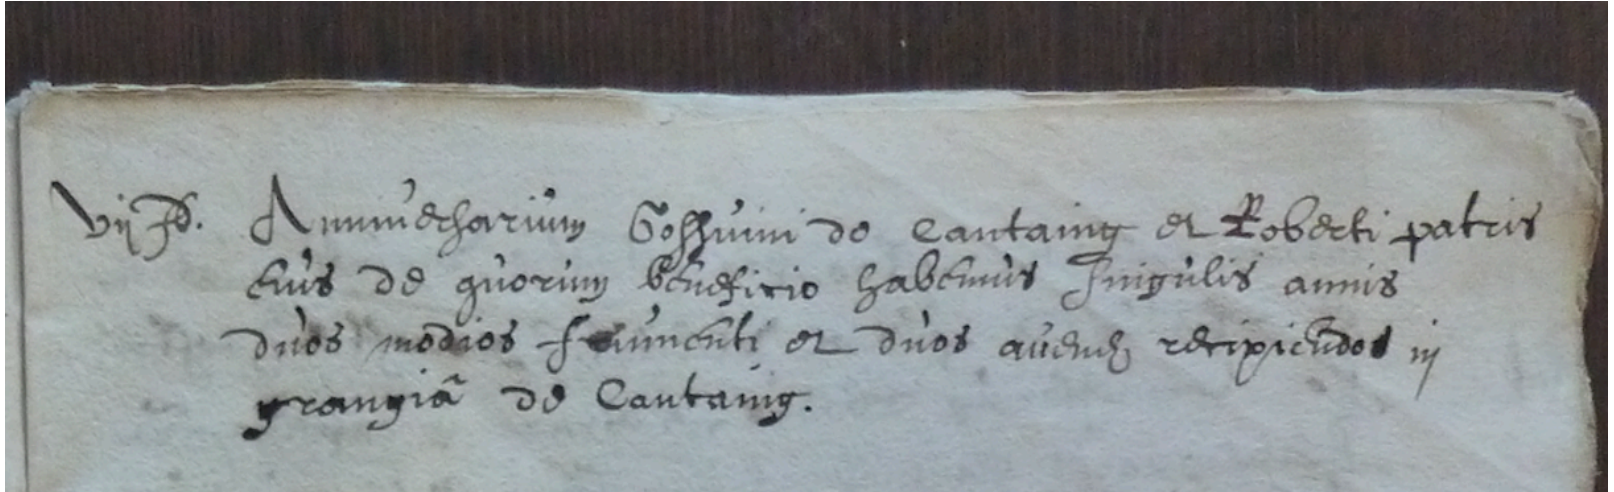 vij Id. Anniversarium Gossuini de Cantaing et Roberti patris
eius de quorum beneficio habemus singulis annis
duos modios frumenti et duos avenę recipiendos in
grangiā de Cantaing.